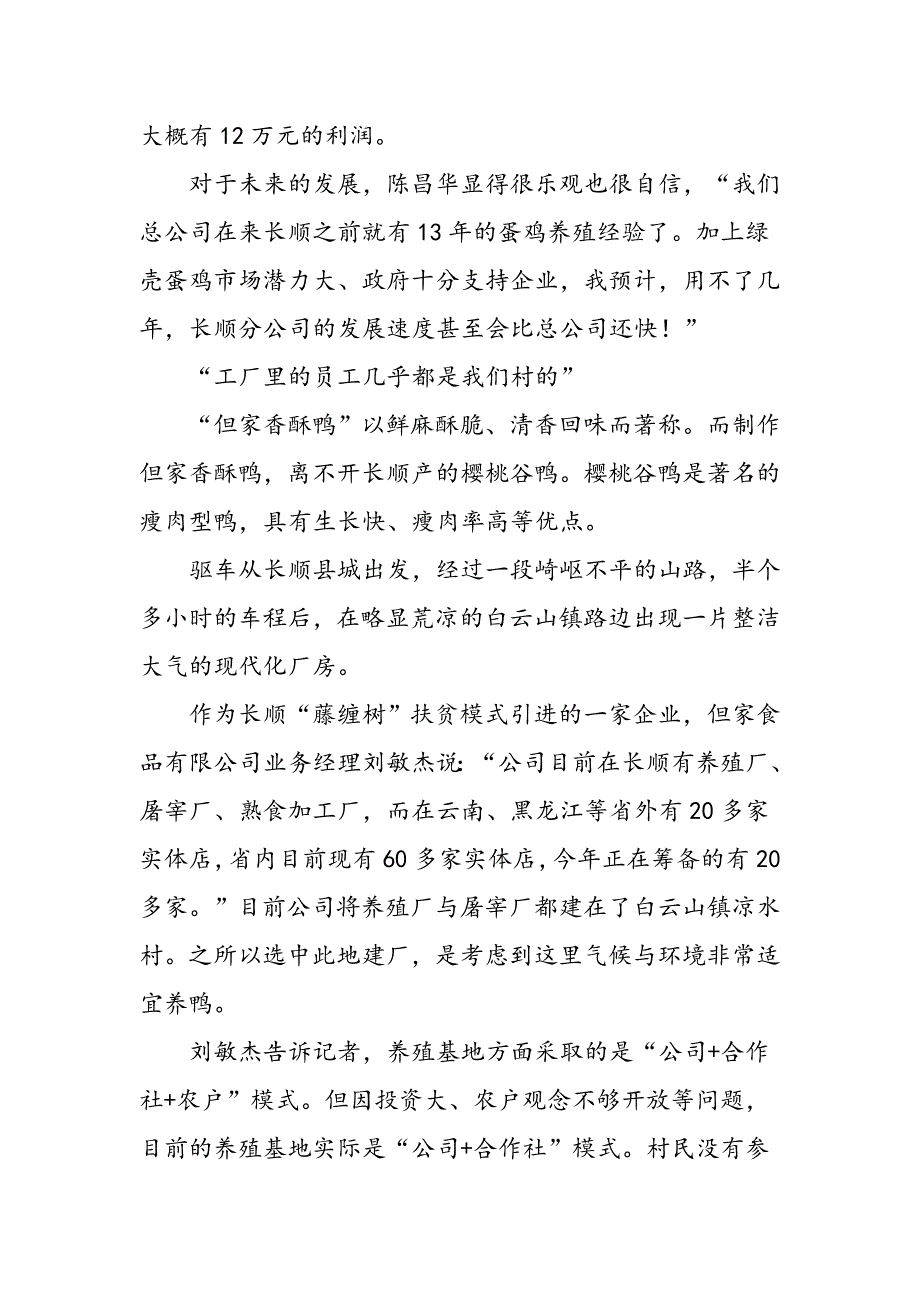 大概有12万元的利润。
对于未来的发展，陈昌华显得很乐观也很自信，“我们
总公司在来长顺之前就有13年的蛋鸡养殖经验了。加上绿
壳蛋鸡市场潜力大、政府十分支持企业，我预计，用不了几
年，长顺分公司的发展速度甚至会比总公司还快！”
“工厂里的员工几乎都是我们村的”
“但家香酥鸭”以鲜麻酥脆、清香回味而著称。而制作
但家香酥鸭，离不开长顺产的樱桃谷鸭。樱桃谷鸭是著名的
瘦肉型鸭，具有生长快、瘦肉率高等优点。
驱车从长顺县城出发，经过一段崎岖不平的山路，半个
多小时的车程后，在略显荒凉的白云山镇路边出现一片整洁
大气的现代化厂房。
作为长顺“藤缠树”扶贫模式引进的一家企业，但家食
品有限公司业务经理刘敏杰说：“公司目前在长顺有养殖厂、
屠宰厂、熟食加工厂，而在云南、黑龙江等省外有20多家
实体店，省内目前现有60多家实体店，今年正在筹备的有20
多家。”目前公司将养殖厂与屠宰厂都建在了白云山镇凉水
村。之所以选中此地建厂，是考虑到这里气候与环境非常适
宜养鸭。
刘敏杰告诉记者，养殖基地方面采取的是“公司+合作
社+农户”模式。但因投资大、农户观念不够开放等问题，
目前的养殖基地实际是“公司+合作社”模式。村民没有参